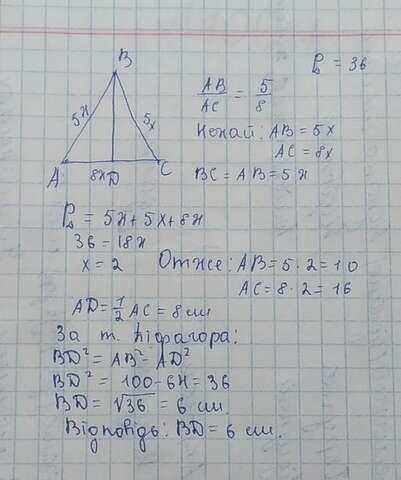 P△ = 36
B
AB/AC = 5/8
5x 5x
Нехай: AB = 5x
AC = 8x
A 8x D C
BC = AB = 5x
P△ = 5x + 5x + 8x
36 = 18x
x = 2
Отже: AB = 5 · 2 = 10
AC = 8 · 2 = 16
AD = 1/2 AC = 8 см
За т. Піфагора:
BD² = AB² - AD²
BD² = 100 - 64 = 36
BD = √36 = 6 см.
Відповідь: BD = 6 см.